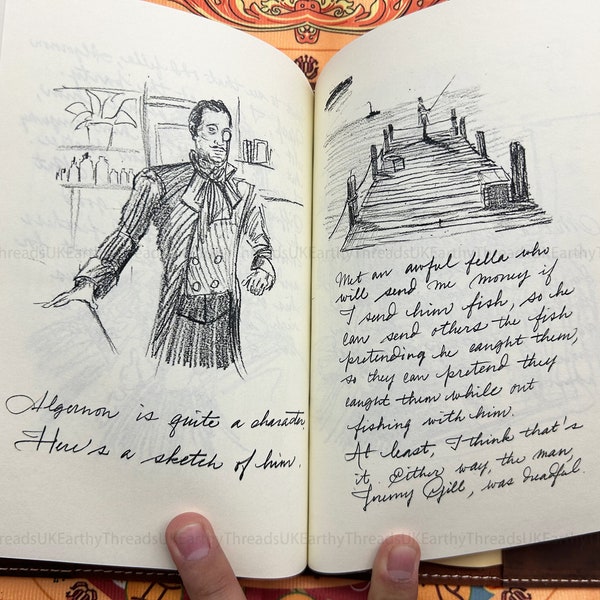 Algernon is quite a character
Here's a sketch of him.
Met an awful fella who
will send me money if
I send him fish, so he
can send others the fish
pretending he caught them,
so they can pretend they
caught them while out
fishing with him.
At least, I think that's
it. Either way, the man,
Jeremy Gill, was dreadful.
ThreadsUKEarthyThreadsUKEarthyThreadsUKEarthyThreadsUKEarthy
ThreadsUKEarthyThreadsUKEarthyThreadsUKEarthyThreadsUKEarthy